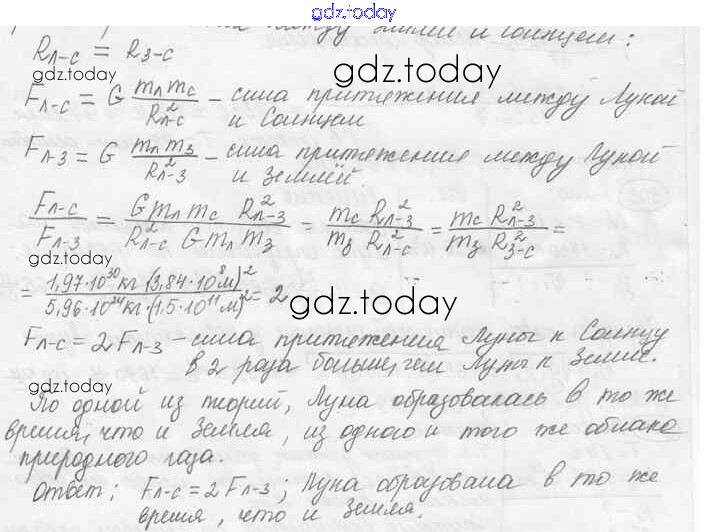 gdz.today
между Землей и Солнцем:
R_Л-С = R_З-С
gdz.today
gdz.today
F_Л-С = G m_Л m_С / R²_Л-С – сила притяжения между Луной
и Солнцем
F_Л-З = G m_Л m_З / R²_Л-З – сила притяжения между Луной
и Землёй
F_Л-С / F_Л-З = G m_Л m_С R²_Л-З / R²_Л-С G m_Л m_З = m_С R²_Л-З / m_З R²_Л-С = m_С R²_Л-З / m_З R²_З-С =
gdz.today
= 1,97·10³⁰ кг·(3,84·10⁸ м)² / 5,96·10²⁴ кг·(1,5·10¹¹ м)² = 2
gdz.today
F_Л-С = 2F_Л-З – сила притяжения Луны к Солнцу
в 2 раза больше, чем Луны к Земле.
gdz.today
По одной из теорий, Луна образовалась в то же
время, что и Земля, из одного и того же облака
природного газа.
gdz.today
Ответ: F_Л-С = 2F_Л-З; Луна образована в то же
время, что и Земля.